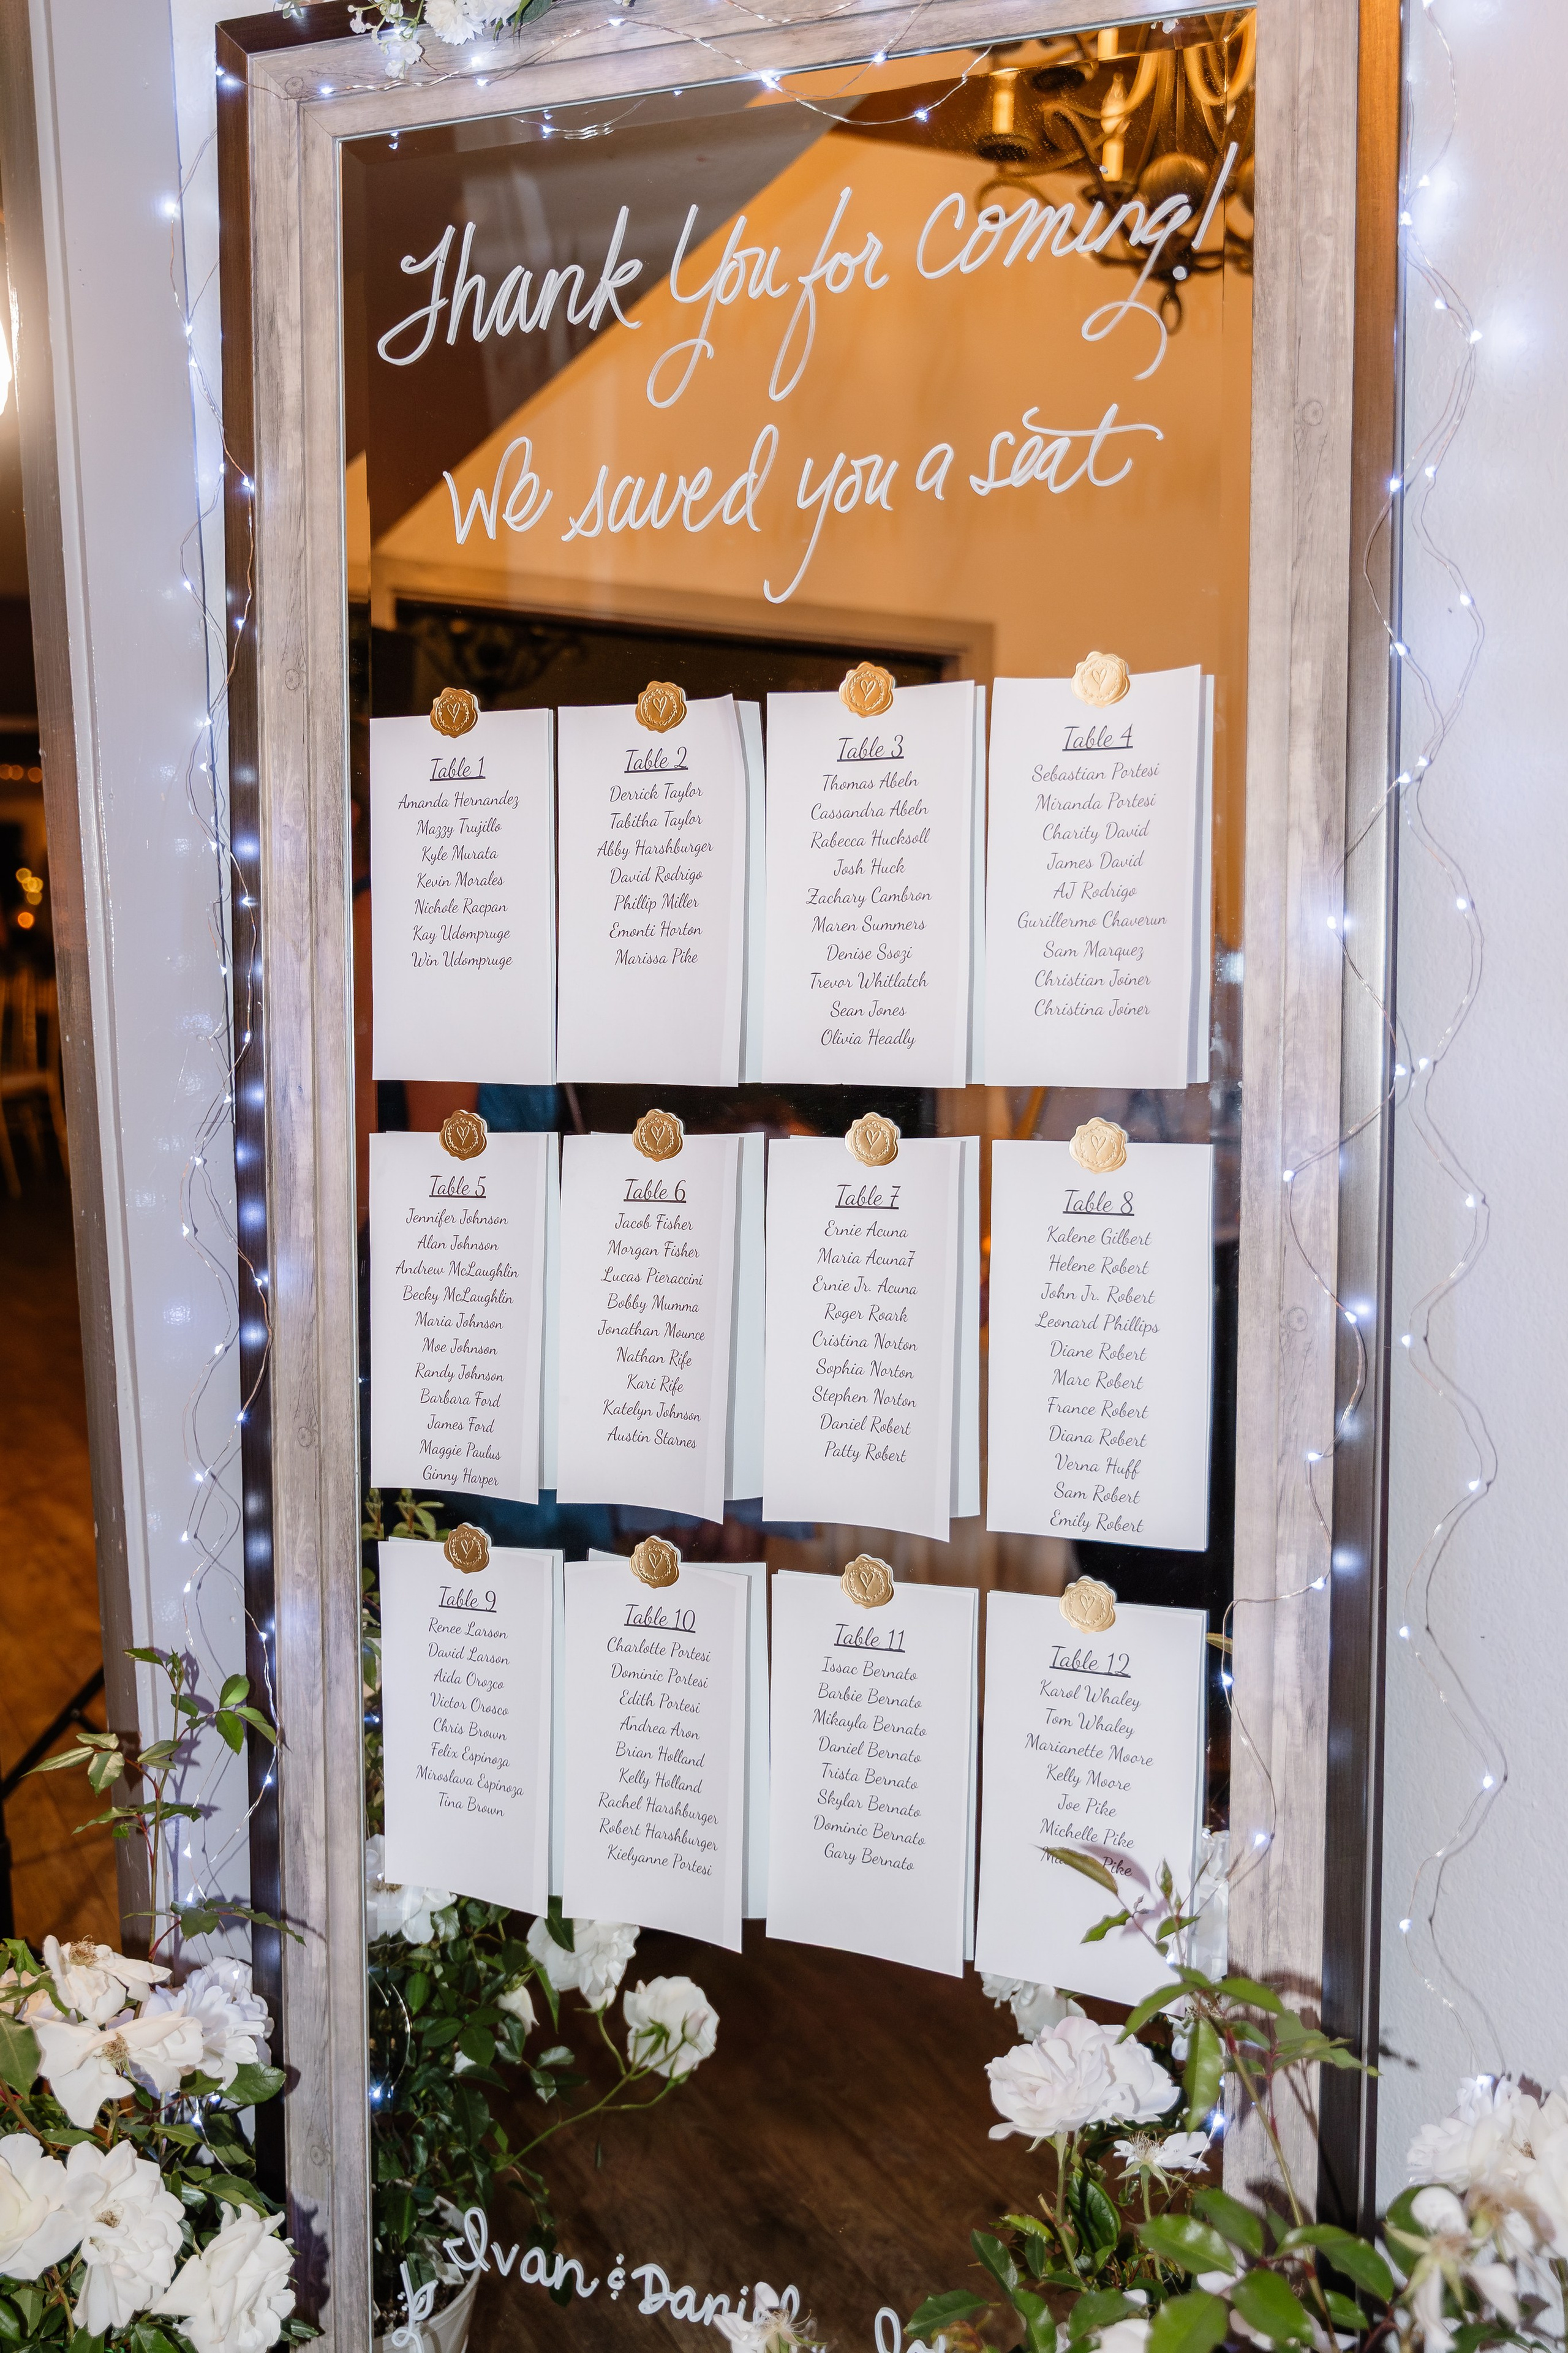 Thank You for Coming!
We saved you a seat
Table 1
Amanda Hernandez
Mazzy Trujillo
Kyle Murata
Kevin Morales
Nichole Racpan
Kay Udompruge
Win Udompruge
Table 2
Derrick Taylor
Tabitha Taylor
Abby Harshburger
David Rodrigo
Phillip Miller
Emonti Horton
Marissa Pike
Table 3
Thomas Abeln
Cassandra Abeln
Rabecca Hucksoll
Josh Huck
Zachary Cambron
Maren Summers
Denise Ssozi
Trevor Whitlatch
Sean Jones
Olivia Headly
Table 4
Sebastian Portesi
Miranda Portesi
Charity David
James David
AJ Rodrigo
Gurillermo Chaverun
Sam Marquez
Christian Joiner
Christina Joiner
Table 5
Jennifer Johnson
Alan Johnson
Andrew McLaughlin
Becky McLaughlin
Maria Johnson
Moe Johnson
Randy Johnson
Barbara Ford
James Ford
Maggie Paulus
Ginny Harper
Table 6
Jacob Fisher
Morgan Fisher
Lucas Pieraccini
Bobby Mumma
Jonathan Mounce
Nathan Rife
Kari Rife
Katelyn Johnson
Austin Starnes
Table 7
Ernie Acuna
Maria Acuna7
Ernie Jr. Acuna
Roger Roark
Cristina Norton
Sophia Norton
Stephen Norton
Daniel Robert
Patty Robert
Table 8
Kalene Gilbert
Helene Robert
John Jr. Robert
Leonard Phillips
Diane Robert
Marc Robert
France Robert
Diana Robert
Verna Huff
Sam Robert
Emily Robert
Table 9
Renee Larson
David Larson
Aida Orozco
Victor Orosco
Chris Brown
Felix Espinoza
Miroslava Espinoza
Tina Brown
Table 10
Charlotte Portesi
Dominic Portesi
Edith Portesi
Andrea Aron
Brian Holland
Kelly Holland
Rachel Harshburger
Robert Harshburger
Kielyanne Portesi
Table 11
Issac Bernato
Barbie Bernato
Mikayla Bernato
Daniel Bernato
Trista Bernato
Skylar Bernato
Dominic Bernato
Gary Bernato
Table 12
Karol Whaley
Tom Whaley
Marianette Moore
Kelly Moore
Joe Pike
Michelle Pike
Pike
Ivan &